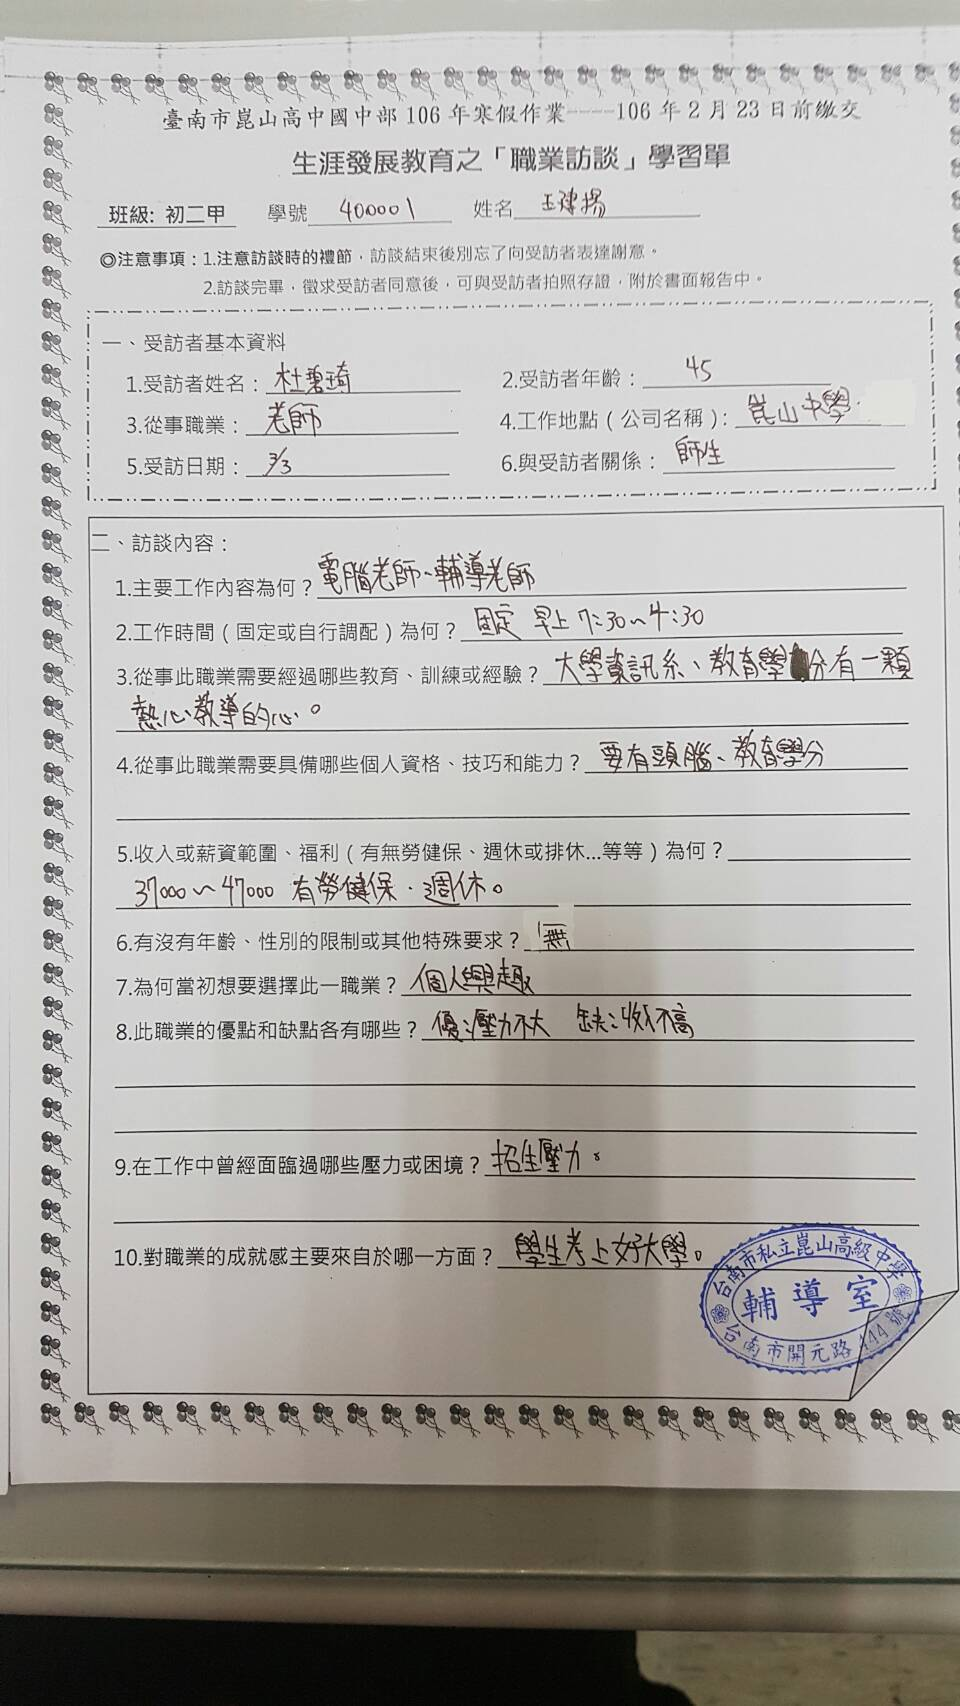 臺南市崑山高中國中部106年寒假作業----106年2月23日前繳交
生涯發展教育之「職業訪談」學習單
班級: 初二甲 學號 400001 姓名 王建揚
◎注意事項：1.注意訪談時的禮節，訪談結束後別忘了向受訪者表達謝意。
2.訪談完畢，徵求受訪者同意後，可與受訪者拍照存證，附於書面報告中。
一、受訪者基本資料
1.受訪者姓名：杜碧琦 2.受訪者年齡：45
3.從事職業：老師 4.工作地點（公司名稱）：崑山中學
5.受訪日期：3/3 6.與受訪者關係：師生
二、訪談內容：
1.主要工作內容為何？電腦老師、輔導老師
2.工作時間（固定或自行調配）為何？固定 早上7:30~4:30
3.從事此職業需要經過哪些教育、訓練或經驗？大學資訊系、教育學分有一顆
熱心教導的心。
4.從事此職業需要具備哪些個人資格、技巧和能力？要有頭腦、教育學分
5.收入或薪資範圍、福利（有無勞健保、週休或排休...等等）為何？
37000~47000 有勞健保、週休。
6.有沒有年齡、性別的限制或其他特殊要求？無
7.為何當初想要選擇此一職業？個人興趣
8.此職業的優點和缺點各有哪些？優:壓力不大 缺:收入不高
9.在工作中曾經面臨過哪些壓力或困境？招生壓力。
10.對職業的成就感主要來自於哪一方面？學生考上好大學。
台南市私立崑山高級中學
輔導室
台南市開元路444號